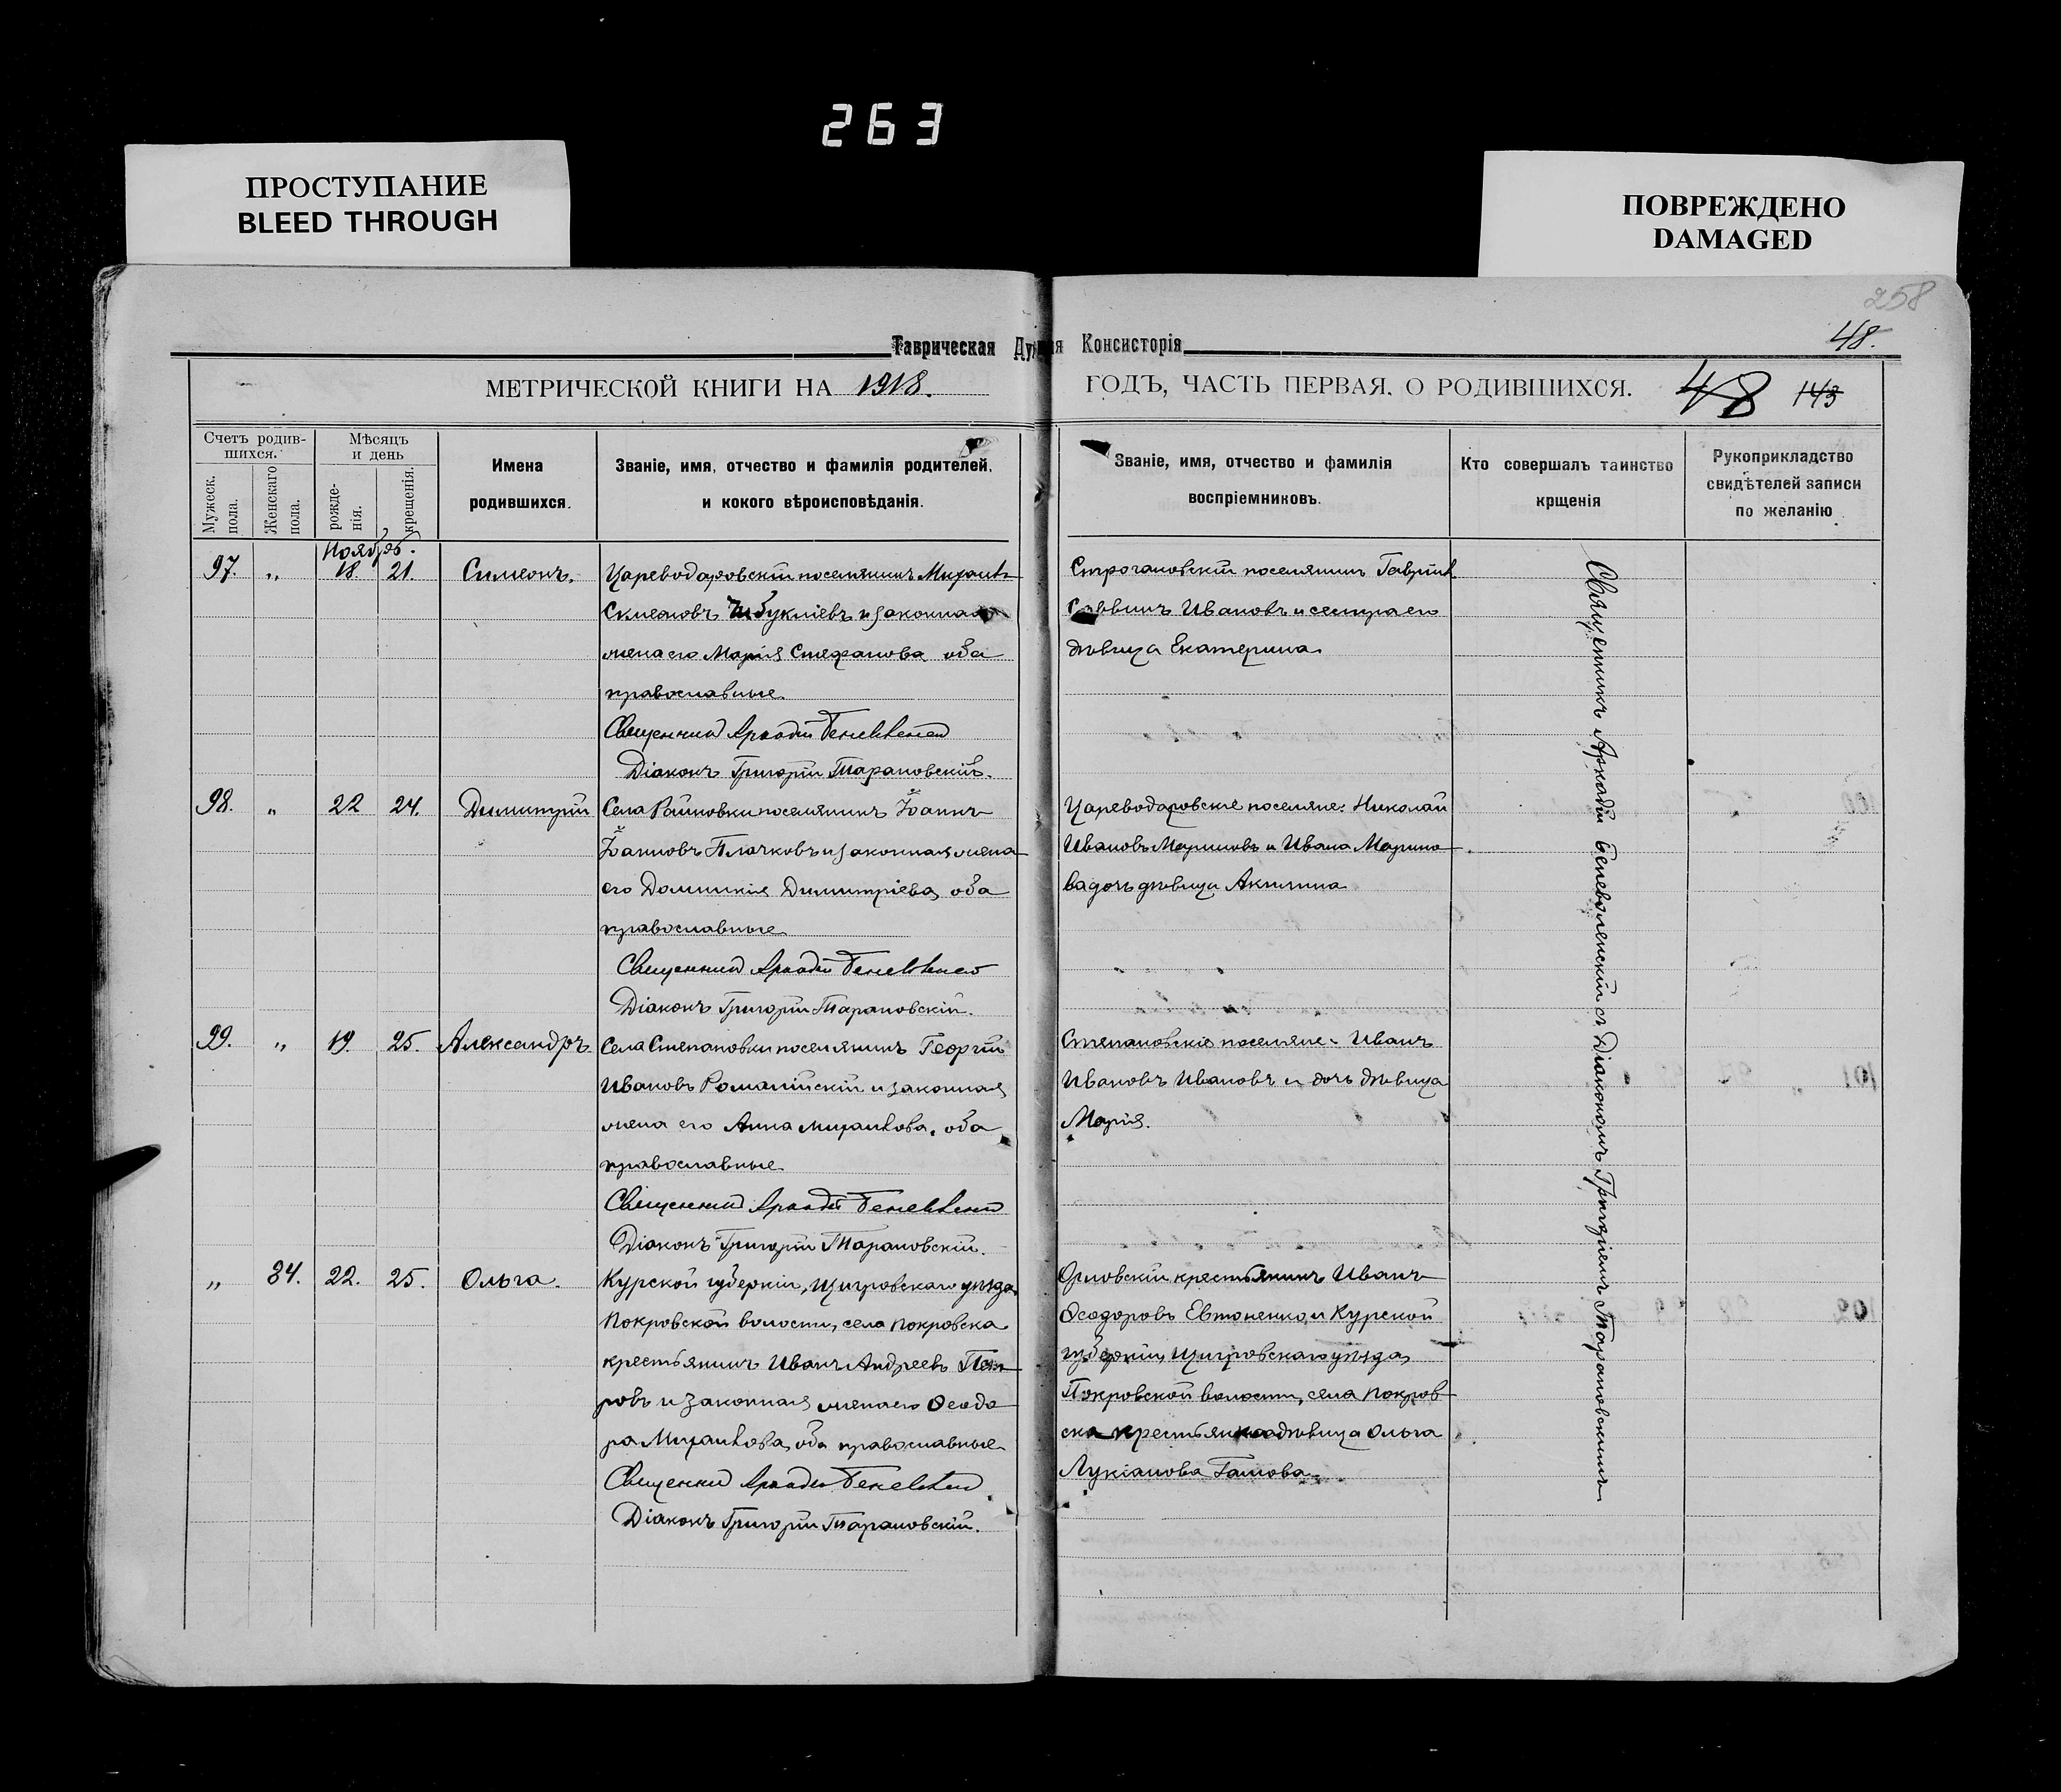 263
ПРОСТУПАНИЕ
BLEED THROUGH
ПОВРЕЖДЕНО
DAMAGED
258
48.
Таврическая Духовная Консисторія
МЕТРИЧЕСКОЙ КНИГИ НА 1918. ГОДЪ, ЧАСТЬ ПЕРВАЯ. О РОДИВШИХСЯ. 48 143
Счетъ родив-
шихся.
Мужеск. пола.
Женскаго пола.
Мѣсяцъ
и день
рожде-
нія.
крещенія.
Имена
родившихся.
Званіе, имя, отчество и фамилія родителей,
и кокого вѣроисповѣданія.
Званіе, имя, отчество и фамилія
воспріемниковъ.
Кто совершалъ таинство
крщенія
Рукоприкладство
свидѣтелей записи
по желанію
Ноябрь.
97. „ 18. 21. Симеонъ. Цареводаровскій поселянинъ Михаилъ
Симеоновъ Чебукліевъ и законная
жена его Марія Стефанова, оба
православные.
Священникъ Аркадій Беневоленскій
Діаконъ Григорій Тарановскій.
Строгановскій поселянинъ Гавріил
Саввинъ Ивановъ и сестра его
дѣвица Екатерина.
98. „ 22 24. Димитрій Села Райновки поселянинъ Іоаннъ
Іоанновъ Плачковъ и законная жена
его Домникія Димитріева, оба
православные.
Священникъ Аркадій Беневоленскій
Діаконъ Григорій Тарановскій.
Цареводаровскіе поселяне: Николай
Ивановъ Мариновъ и Ивана Марино
ва дочь дѣвица Акилина
99. „ 19. 25. Александръ. Села Степановки поселянинъ Георгій
Ивановъ Романійскій и законная
жена его Анна Михаилова, оба
православные.
Священникъ Аркадій Беневоленскій
Діаконъ Григорій Тарановскій.
Степановскіе поселяне: Иванъ
Ивановъ Ивановъ и дочь дѣвица
Марія.
„ 84. 22. 25. Ольга. Курской губерніи, Щигровскаго уѣзда,
Покровской волости, села Покровска
крестьянинъ Иванъ Андреевъ Пет
ровъ и законная жена его Ѳеодо
ра Михаилова, оба православные.
Священникъ Аркадій Беневоленскій
Діаконъ Григорій Тарановскій.
Орловскій крестьянинъ Иванъ
Ѳеодоровъ Евтоненко, и Курской
губерніи, Щигровскаго уѣзда,
Покровской волости, села Покров
ска крестьянка дѣвица Ольга
Лукіанова Гамова.
Священникъ Аркадій Беневоленскій съ Діакономъ Григоріемъ Тарановскимъ